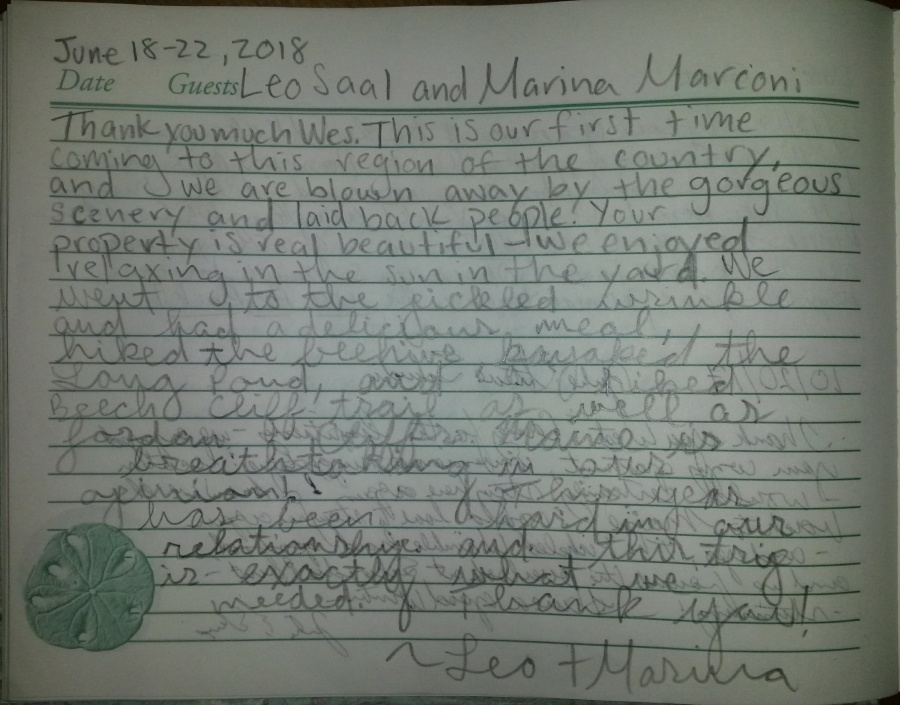 June 18-22, 2018
Date Guests Leo Saal and Marina Marconi
Thank you much Wes. This is our first time
coming to this region of the country,
and we are blown away by the gorgeous
scenery and laid back people! Your
property is real beautiful - we enjoyed
relaxing in the sun in the yard. We
went to the pickled wrinkle
and had a delicious meal,
hiked the beehive kayaked the
Long Pond, hiked
Beech Cliff trail as well as
Jordan Maine is
breathtaking in both
opinion! This year
has been hard in our
relationship and this trip
is exactly what we
needed. Thank you!
~Leo + Marina